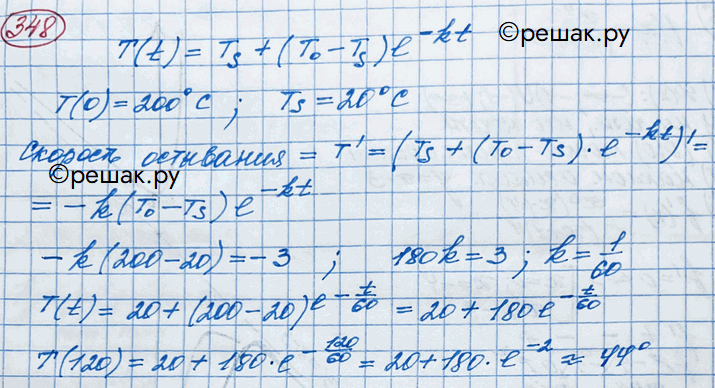 348
T(t) = Ts + (To − Ts) e^{−kt} ©решак.ру
T(0) = 200°C ; Ts = 20°C
Скорость остывания = T' = (Ts + (To − Ts) · e^{−kt})' =
©решак.ру
= −k (To − Ts) e^{−kt}
−k (200 − 20) = −3 ; 180k = 3 ; k = 1/60
T(t) = 20 + (200 − 20) e^{−t/60} = 20 + 180 e^{−t/60}
T(120) = 20 + 180 · e^{−120/60} = 20 + 180 · e^{−2} ≈ 44°